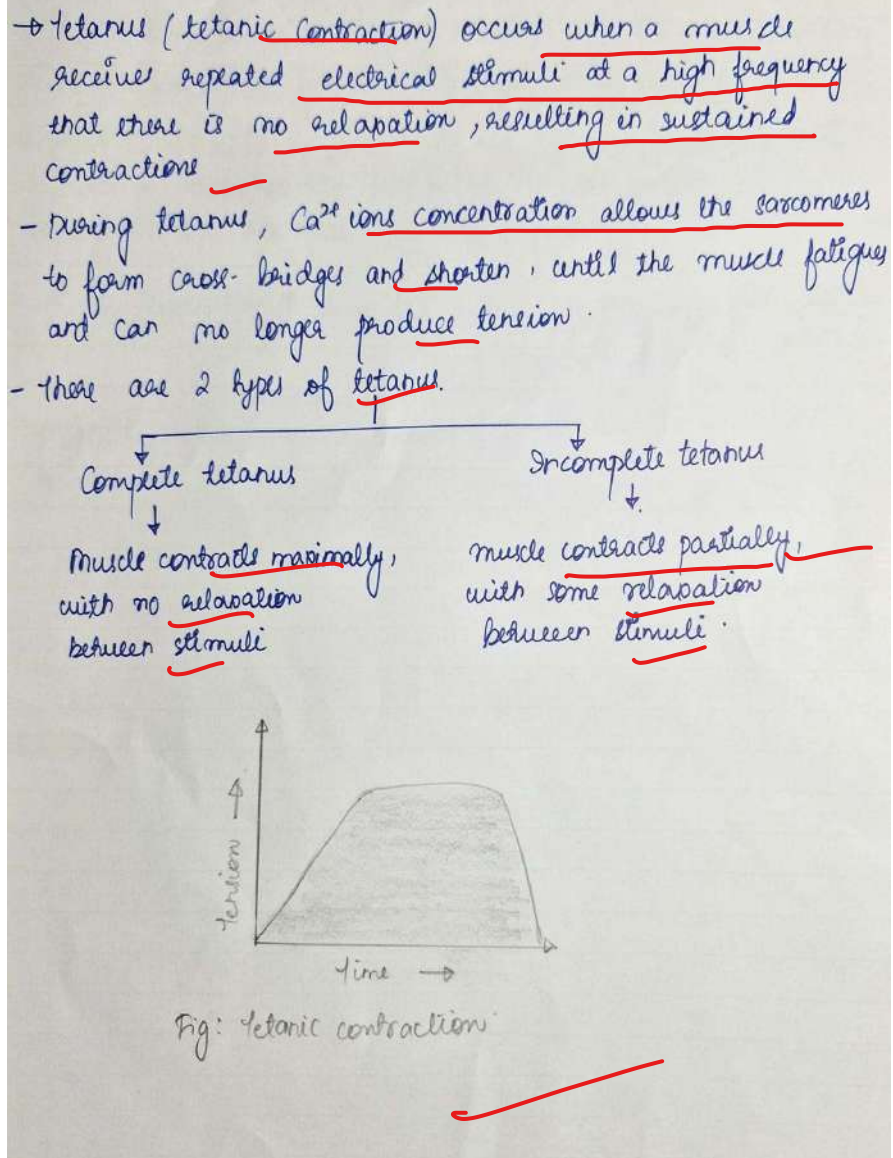 → Tetanus (tetanic contraction) occurs when a muscle
receives repeated electrical stimuli at a high frequency
that there is no relaxation, resulting in sustained
contractions
- During tetanus, Ca²⁺ ions concentration allows the sarcomeres
to form cross-bridges and shorten, until the muscle fatigues
and can no longer produce tension.
- There are 2 types of tetanus.
Complete tetanus
Incomplete tetanus
Muscle contracts maximally,
with no relaxation
between stimuli
muscle contracts partially,
with some relaxation
between stimuli.
Tension →
Time →
Fig: Tetanic contraction